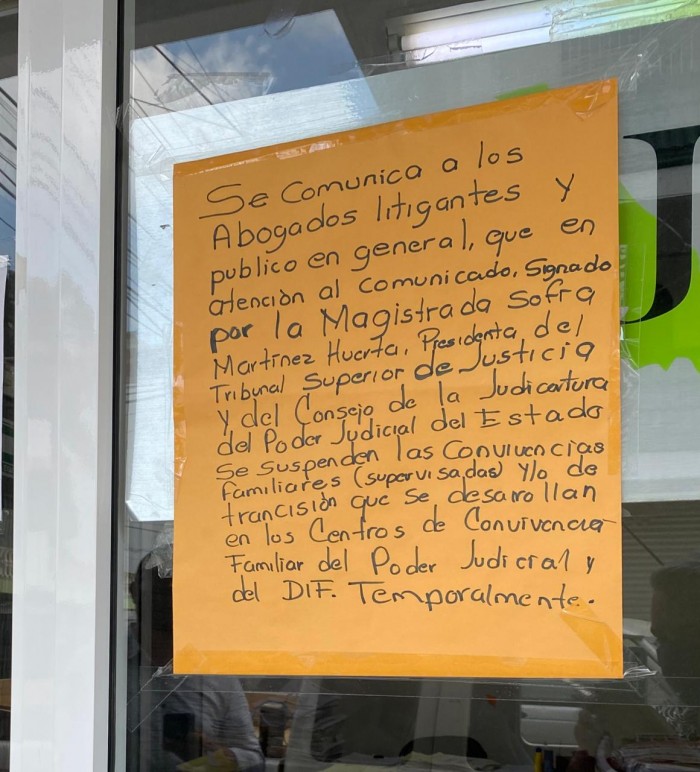 Se Comunica a los
Abogados litigantes y
publico en general, que en
atención al comunicado, Signado
por la Magistrada Sofra
Martínez Huerta, Presidenta del
Tribunal Superior de Justicia
y del Consejo de la Judicatura
del Poder Judicial del Estado
Se Suspenden las Convivencias
familiares (supervisadas) y/o de
trancisión que se desarrollan
en los Centros de Convivencia
Familiar del Poder Judicial y
del DIF. Temporalmente.
J